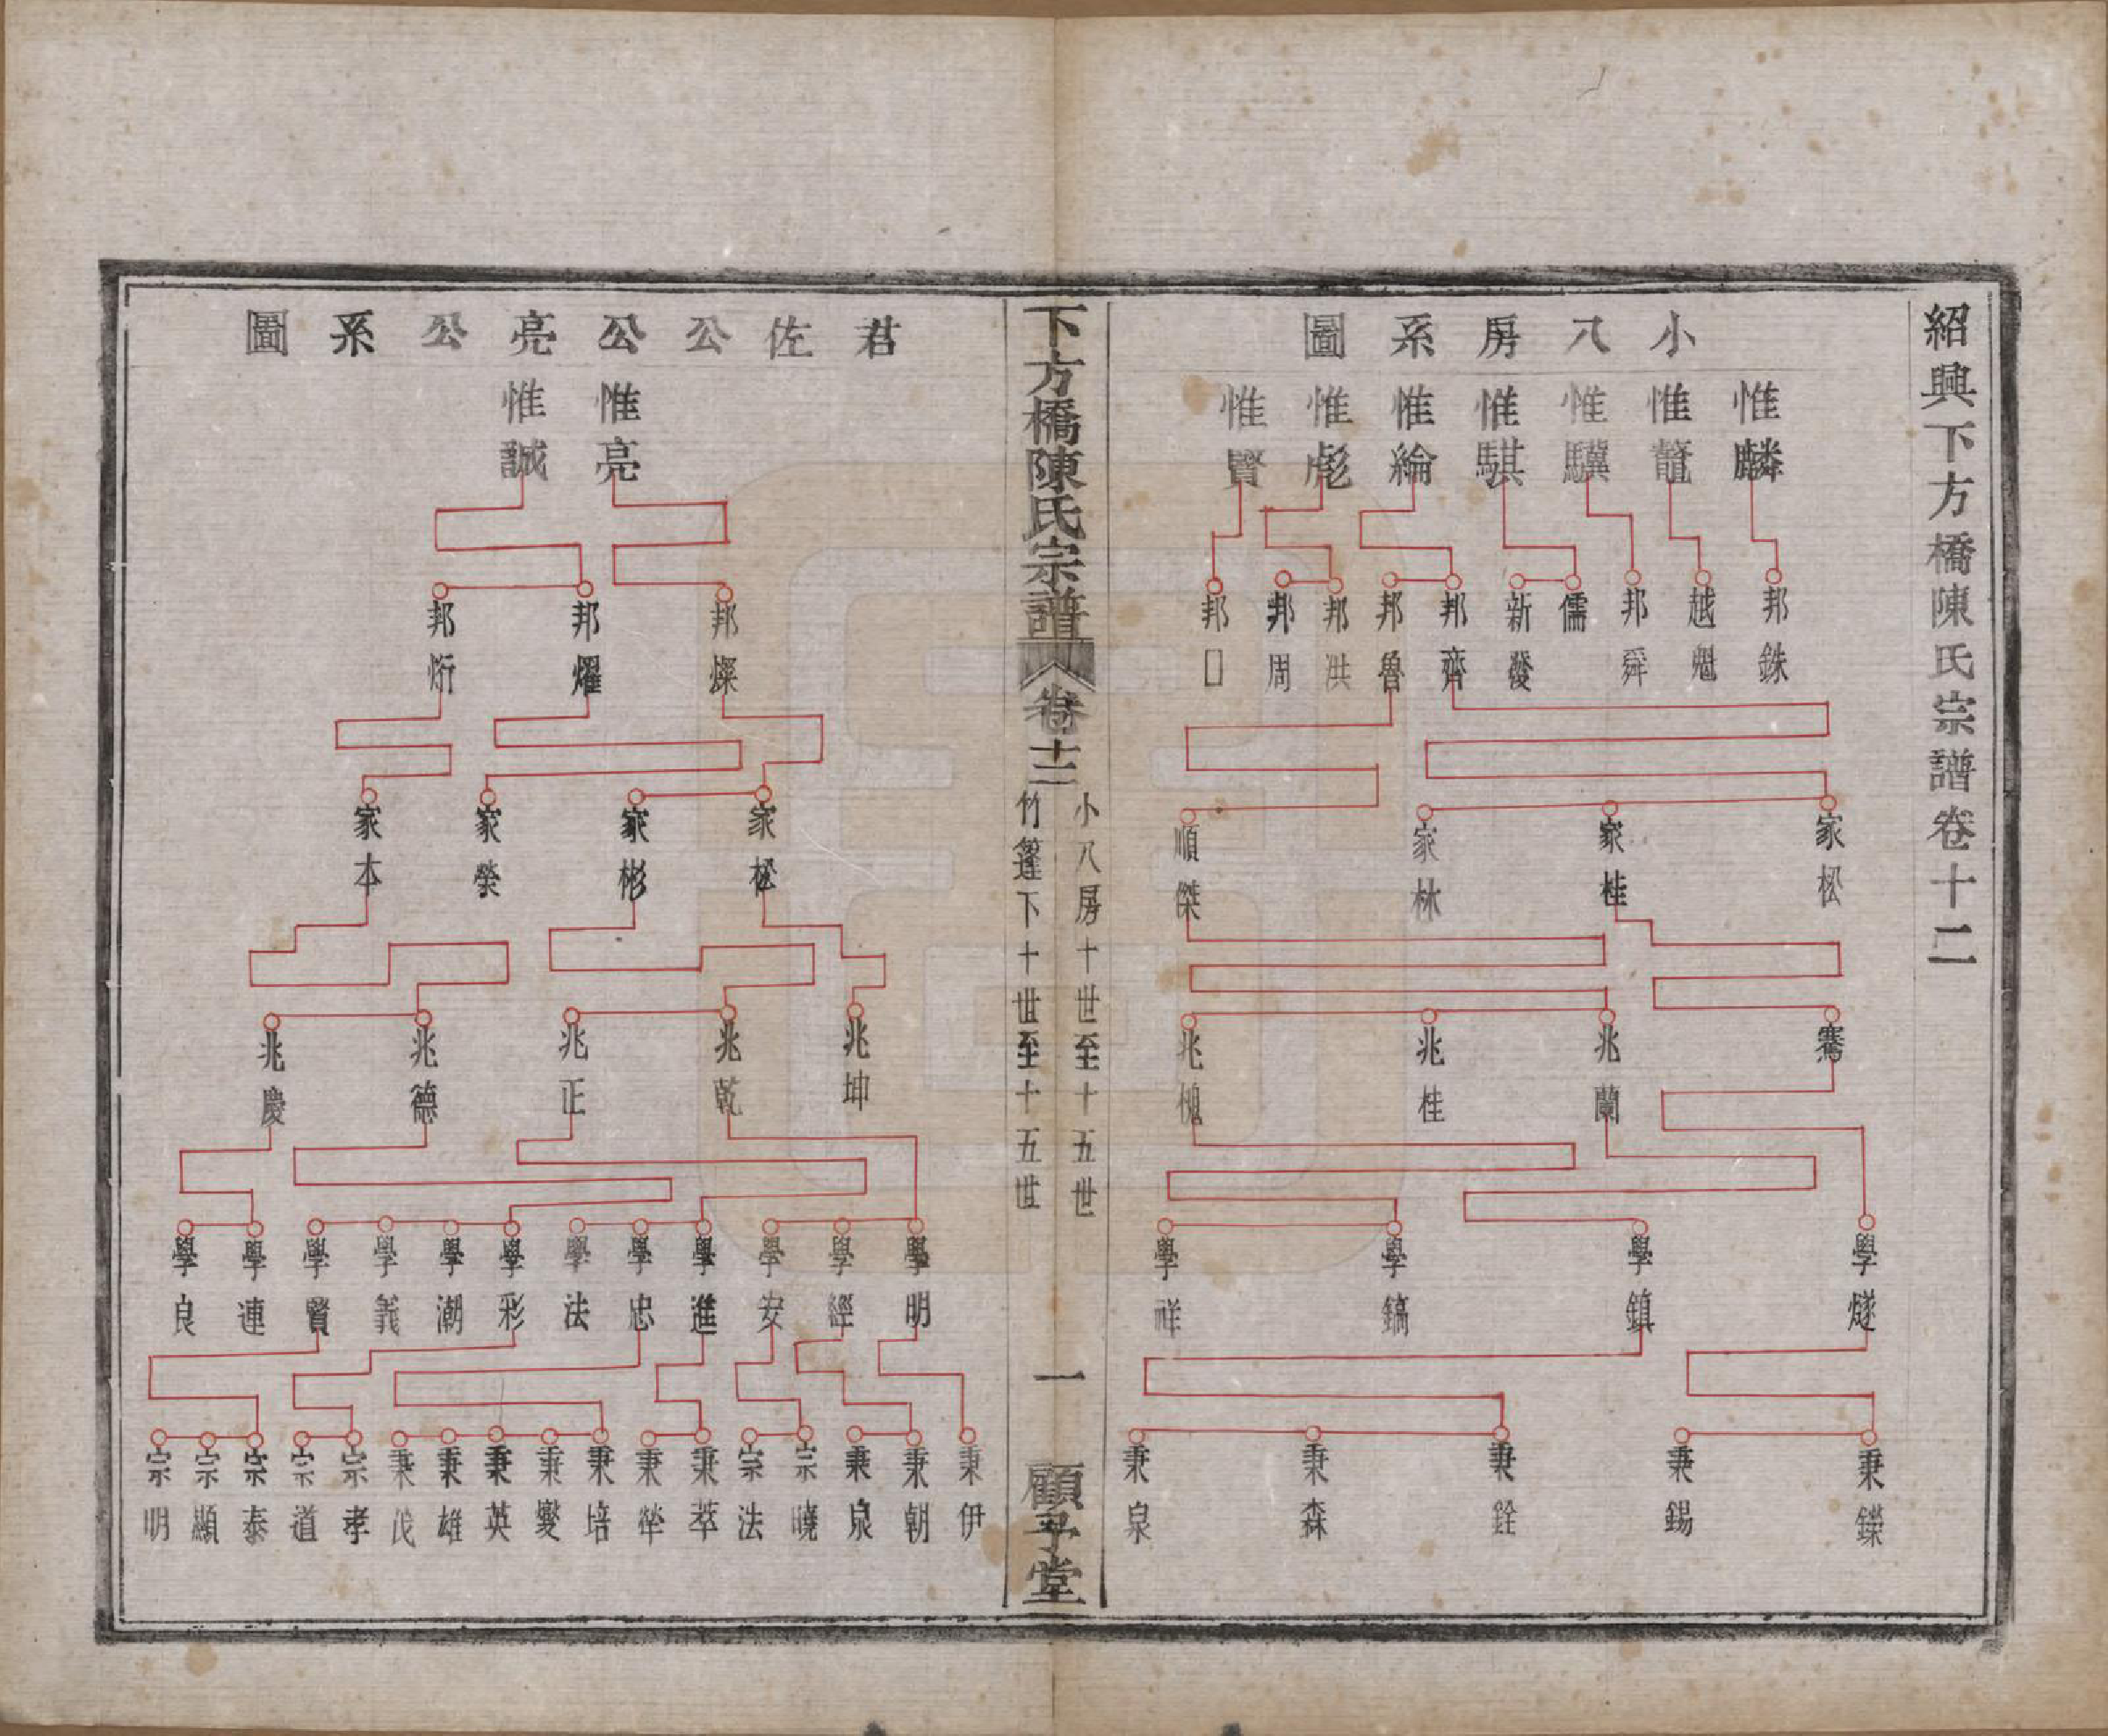 紹興下方橋陳氏宗譜卷十二
小八房系圖
惟麟 惟鼇 惟驥 惟騏 惟綸 惟彪 惟賢
邦銖 越魁 邦舜 儒 新發 邦齊 邦魯 邦洪 邦周 邦□
家松 家桂 家林 順傑
騫 兆蘭 兆桂 兆槐
學燧 學鎮 學鎬 學祥
秉鑠 秉錫 秉銓 秉森 秉泉
下方橋陳氏宗譜
卷十二
小八房十世至十五世
竹篷下十世至十五世
一
顧予堂
君佐公公亮公系圖
惟亮 惟誠
邦燦 邦燿 邦衍
家松 家彬 家榮 家本
兆坤 兆乾 兆正 兆德 兆慶
學明 學經 學安 學進 學忠 學法 學彩 學潮 學義 學賢 學連 學良
秉伊 秉朝 秉泉 宗曉 宗法 秉萃 秉犖 秉培 秉燮 秉英 秉雄 秉茂 宗孝 宗道 宗泰 宗顯 宗明